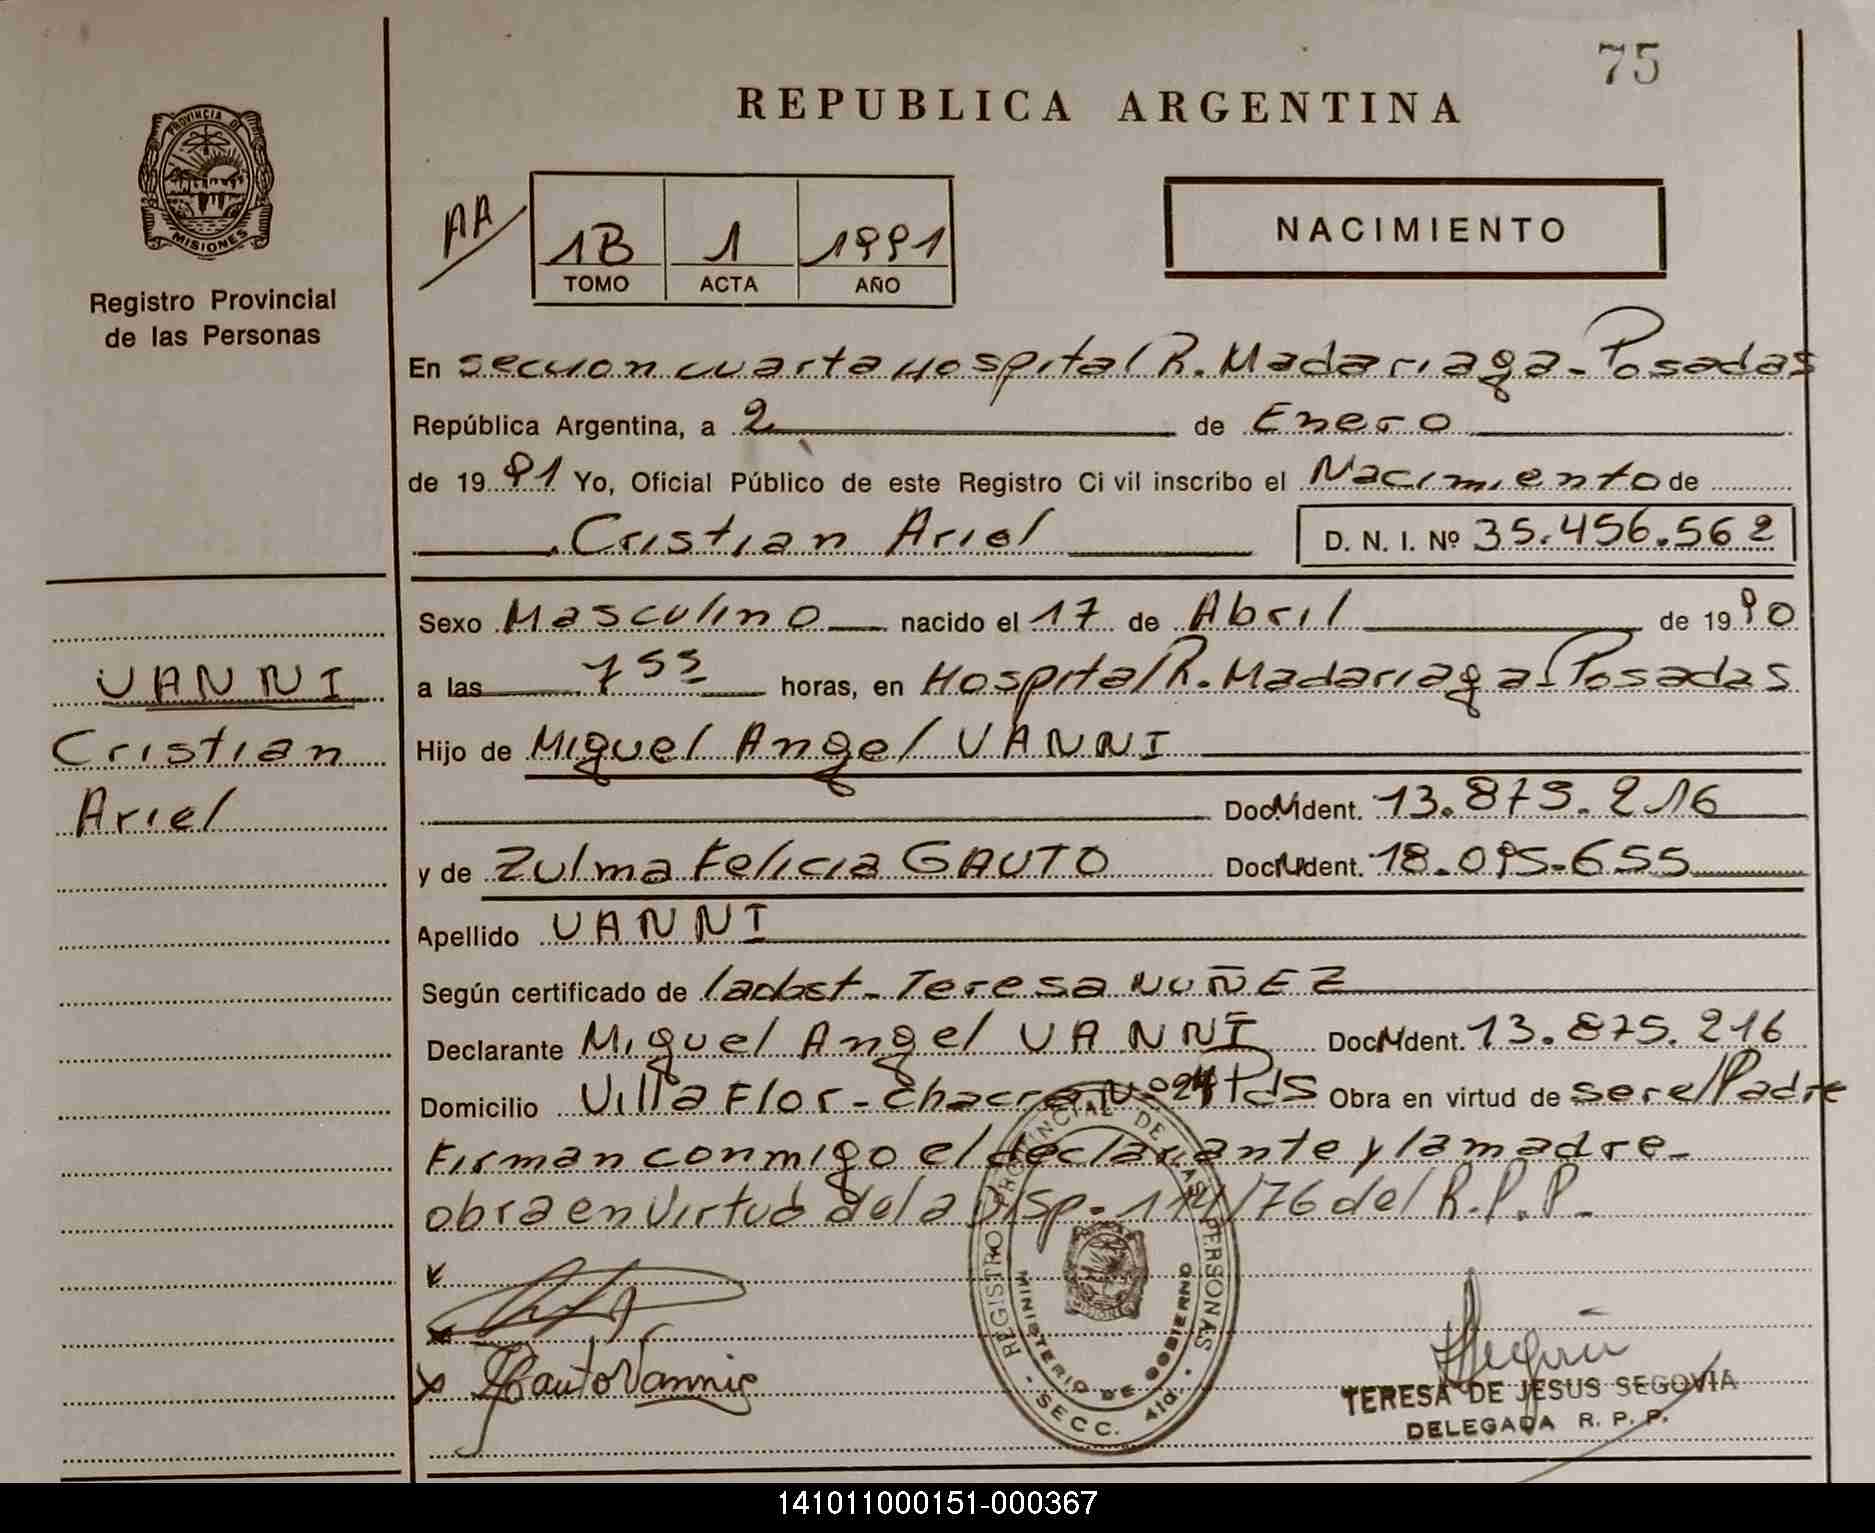 75
REPUBLICA ARGENTINA
PROVINCIA DE
MISIONES
Registro Provincial
de las Personas
AA
1B 1 1991
TOMO ACTA AÑO
NACIMIENTO
En seccion cuarta Hospital R. Madariaga - Posadas
República Argentina, a 2 de Enero
de 19 91 Yo, Oficial Público de este Registro Civil inscribo el Nacimiento de
Cristian Ariel D. N. I. Nº 35.456.562
Sexo Masculino nacido el 17 de Abril de 19 90
VANNI
a las 7 55 horas, en Hospital R. Madariaga - Posadas
Cristian
Hijo de Miguel Angel VANNI
Ariel
Doc. M Ident. 13.875.216
y de Zulma Felicia GAUTO Doc. N Ident. 18.095.655
Apellido VANNI
Según certificado de la obst. Teresa NUÑEZ
Declarante Miguel Angel VANNI Doc. N Ident. 13.875.216
Domicilio Villa Flor - Chacra Nº 24 Pds Obra en virtud de ser el Padre
Firman conmigo el declarante y la madre -
obra en virtud de la Disp. 114/76 del R.P.P.
REGISTRO PROVINCIAL DE LAS PERSONAS
MINISTERIO DE GOBIERNO
SECC. 4ta.
Gauto Vanni
TERESA DE JESUS SEGOVIA
DELEGADA R. P. P.
141011000151-000367